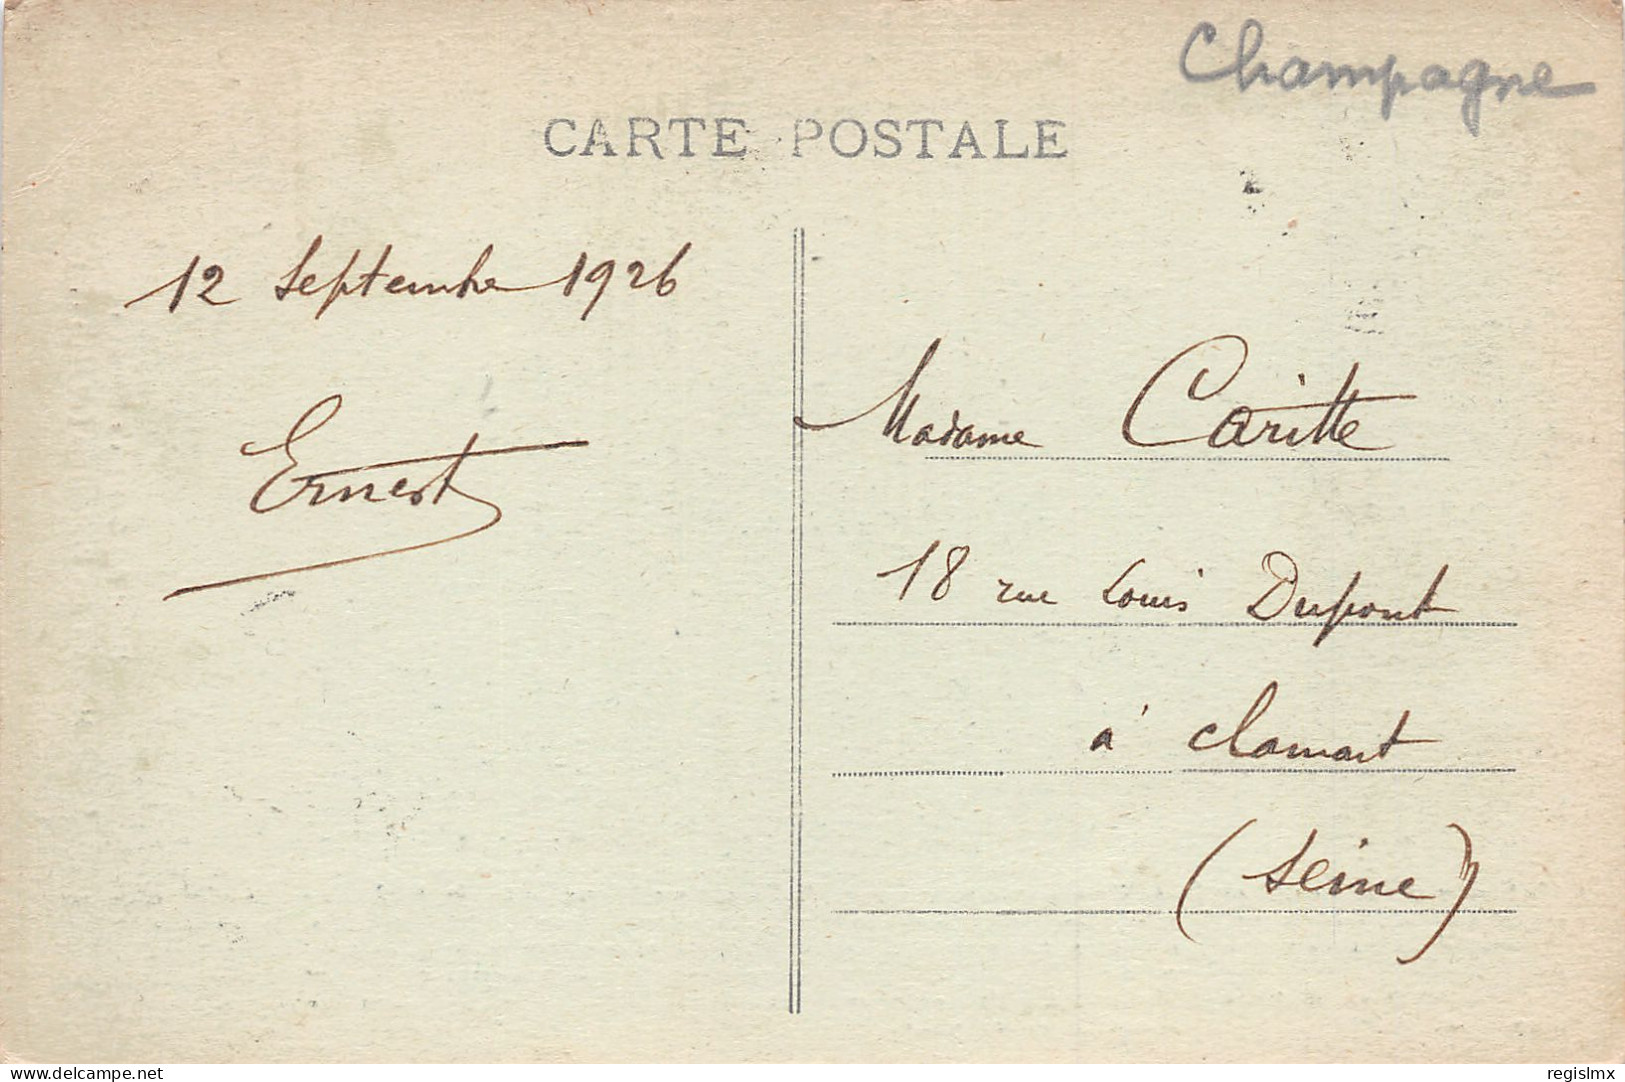 Champagne
CARTE POSTALE
12 Septembre 1926
Ernest
Madame Caritte
18 rue Louis Dupont
à Clamart
(Seine)
www.delcampe.net
regislmx